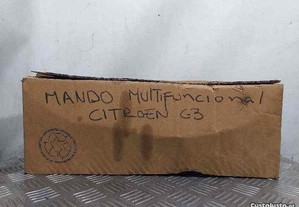 MANDO MULTIFUNCIONAL
CITROEN C3
CustoJusto.pt